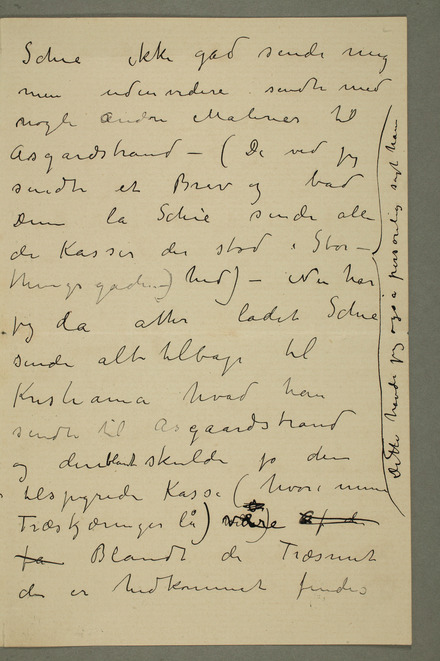 Schie ikke gad sende mig
men uden videre sendte med
nogle andre Malerier til
Asgaardstrand – (De ved jeg
sendte et Brev og bad
Dem la Schie sende alle
de Kasser der stod i Stor-
thingsgaden –) hid) – Nu har
jeg da atter ladet Schie
sende alt tilbage til
Kristiania hvad han
sendte til Asgaardstrand
og deriblandt skulde jo den
tilspigrede Kasse (hvori mine
Træskjæringer lå) være af de
fa Blandt de Træsnit
der er hidkommet findes
Dette havde jeg også personlig sagt ham